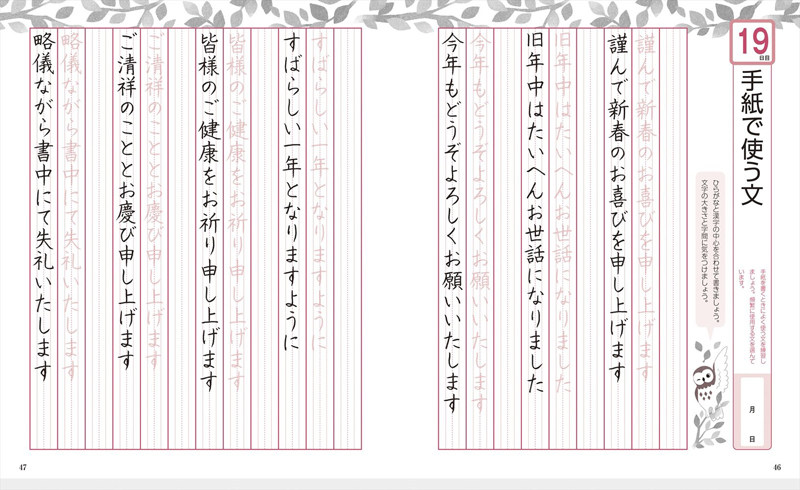 19
日目
手紙で使う文
手紙を書くときによく使う文を練習し
ましょう。頻繁に使用する文を選んで
います。
月 日
ひらがなと漢字の中心を合わせて書きましょう。
文字の大きさと字間に気をつけましょう。
謹んで新春のお喜びを申し上げます
謹んで新春のお喜びを申し上げます
旧年中はたいへんお世話になりました
旧年中はたいへんお世話になりました
今年もどうぞよろしくお願いいたします
今年もどうぞよろしくお願いいたします
46
すばらしい一年となりますように
すばらしい一年となりますように
皆様のご健康をお祈り申し上げます
皆様のご健康をお祈り申し上げます
ご清祥のこととお慶び申し上げます
ご清祥のこととお慶び申し上げます
略儀ながら書中にて失礼いたします
略儀ながら書中にて失礼いたします
47